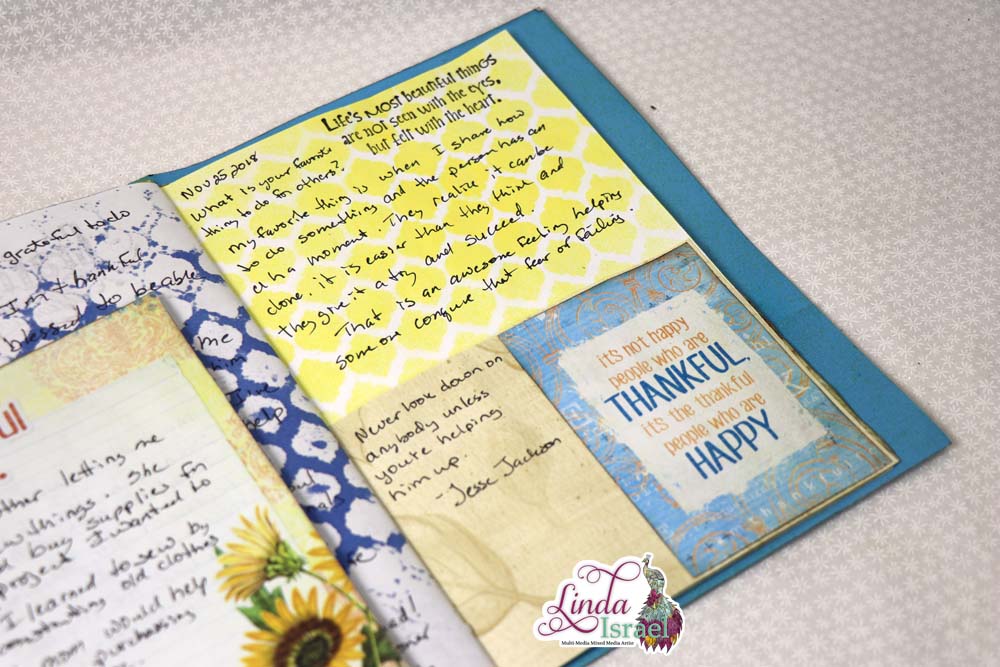 grateful to do
I'm thankful
blessed to be able
me
help
ul
letting me
things. She
buy supplies for
project I wanted to
I learned to sew by
old clothes
mom would help
purchasing
Life's most beautiful things
are not seen with the eyes,
but felt with the heart.
Nov 25, 2018
What is your favorite
thing to do for others?
My favorite thing is when I share how
to do something and the person has an
ah ha moment. They realize it can be
done. it is easier than they think and
they give it a try and succeed.
That is an awesome feeling helping
someone conquer that fear of failing.
Never look down on
anybody unless
you're helping
him up.
-Jesse Jackson
it's not happy
people who are
THANKFUL,
it's the thankful
people who are
HAPPY
Linda
Israel
Multi Media Mixed Media Artist